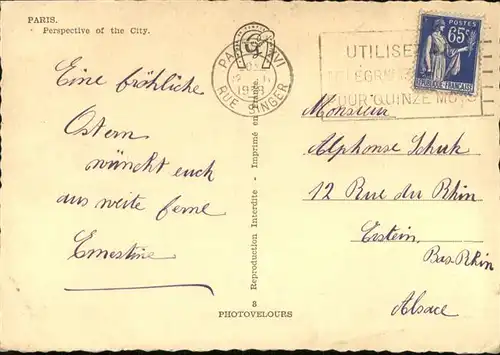 PARIS.
Perspective of the City.
Eine fröhliche
Ostern
wünckt euch
aus weite ferne
Ernestine
Reproduction Interdite - Imprimé en France.
8
PHOTOVELOURS
RUE SINGER
UTILISEZ
POUR QUINZE MOTS
POSTES
65c
REPUBLIQUE FRANÇAISE
Monsieur
Alphonse Schuk
12 Rue du Rhin
Erstein
Bas-Rhin
Alsace